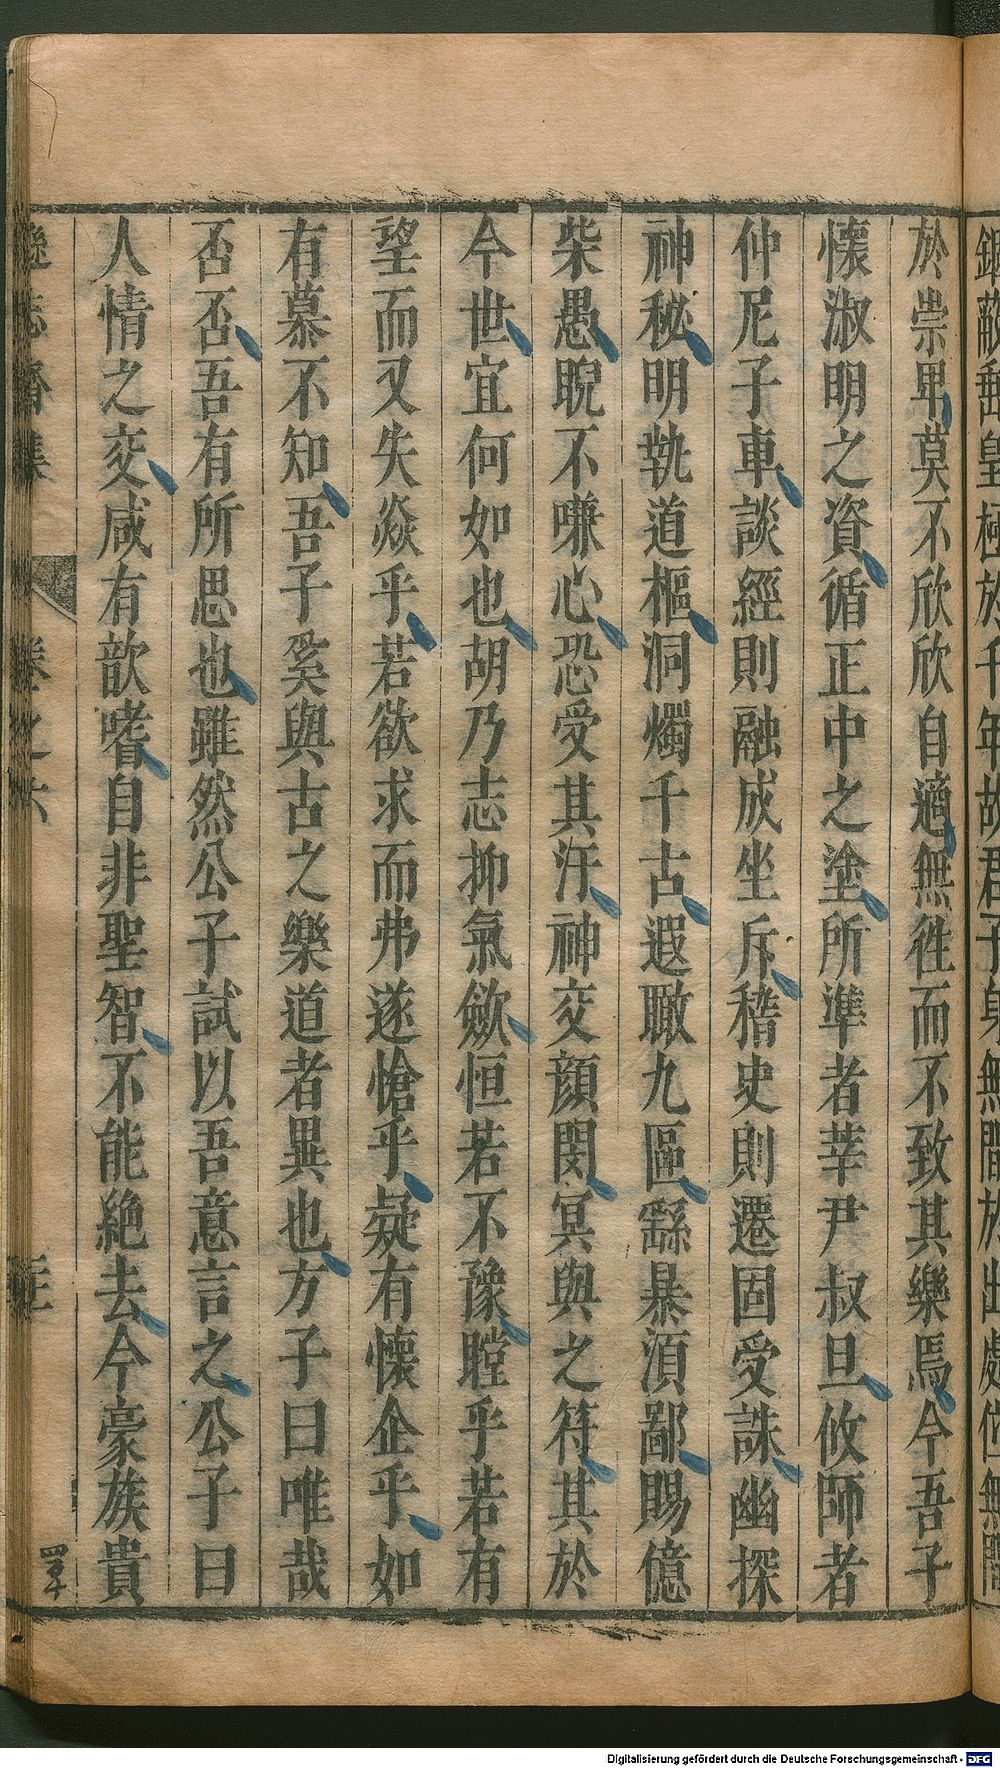 於崇卑莫不欣欣自適無徃而不致其樂焉今吾子
懷淑明之資循正中之塗所準者莘尹叔旦攸師者
仲尼子車談經則融成坐斥稽史則遷固受誅幽探
神秘明執道樞洞燭千古遐瞰九區繇暴湏鄙賜億
柴愚睨不嗛心恐受其汙神交顔閔冥與之符其於
今世宜何如也胡乃志抑氣歛恒若不豫瞠乎若有
望而又失焱乎若欲求而弗遂愴乎疑有懷企乎如
有慕不知吾子奚與古之樂道者異也方子曰唯哉
否否吾有所思也雖然公子試以吾意言之公子曰
人情之交咸有歆嗜自非聖智不能絶去今豪族貴
遜志齋集
卷之六
三
Digitalisierung gefördert durch die Deutsche Forschungsgemeinschaft - DFG